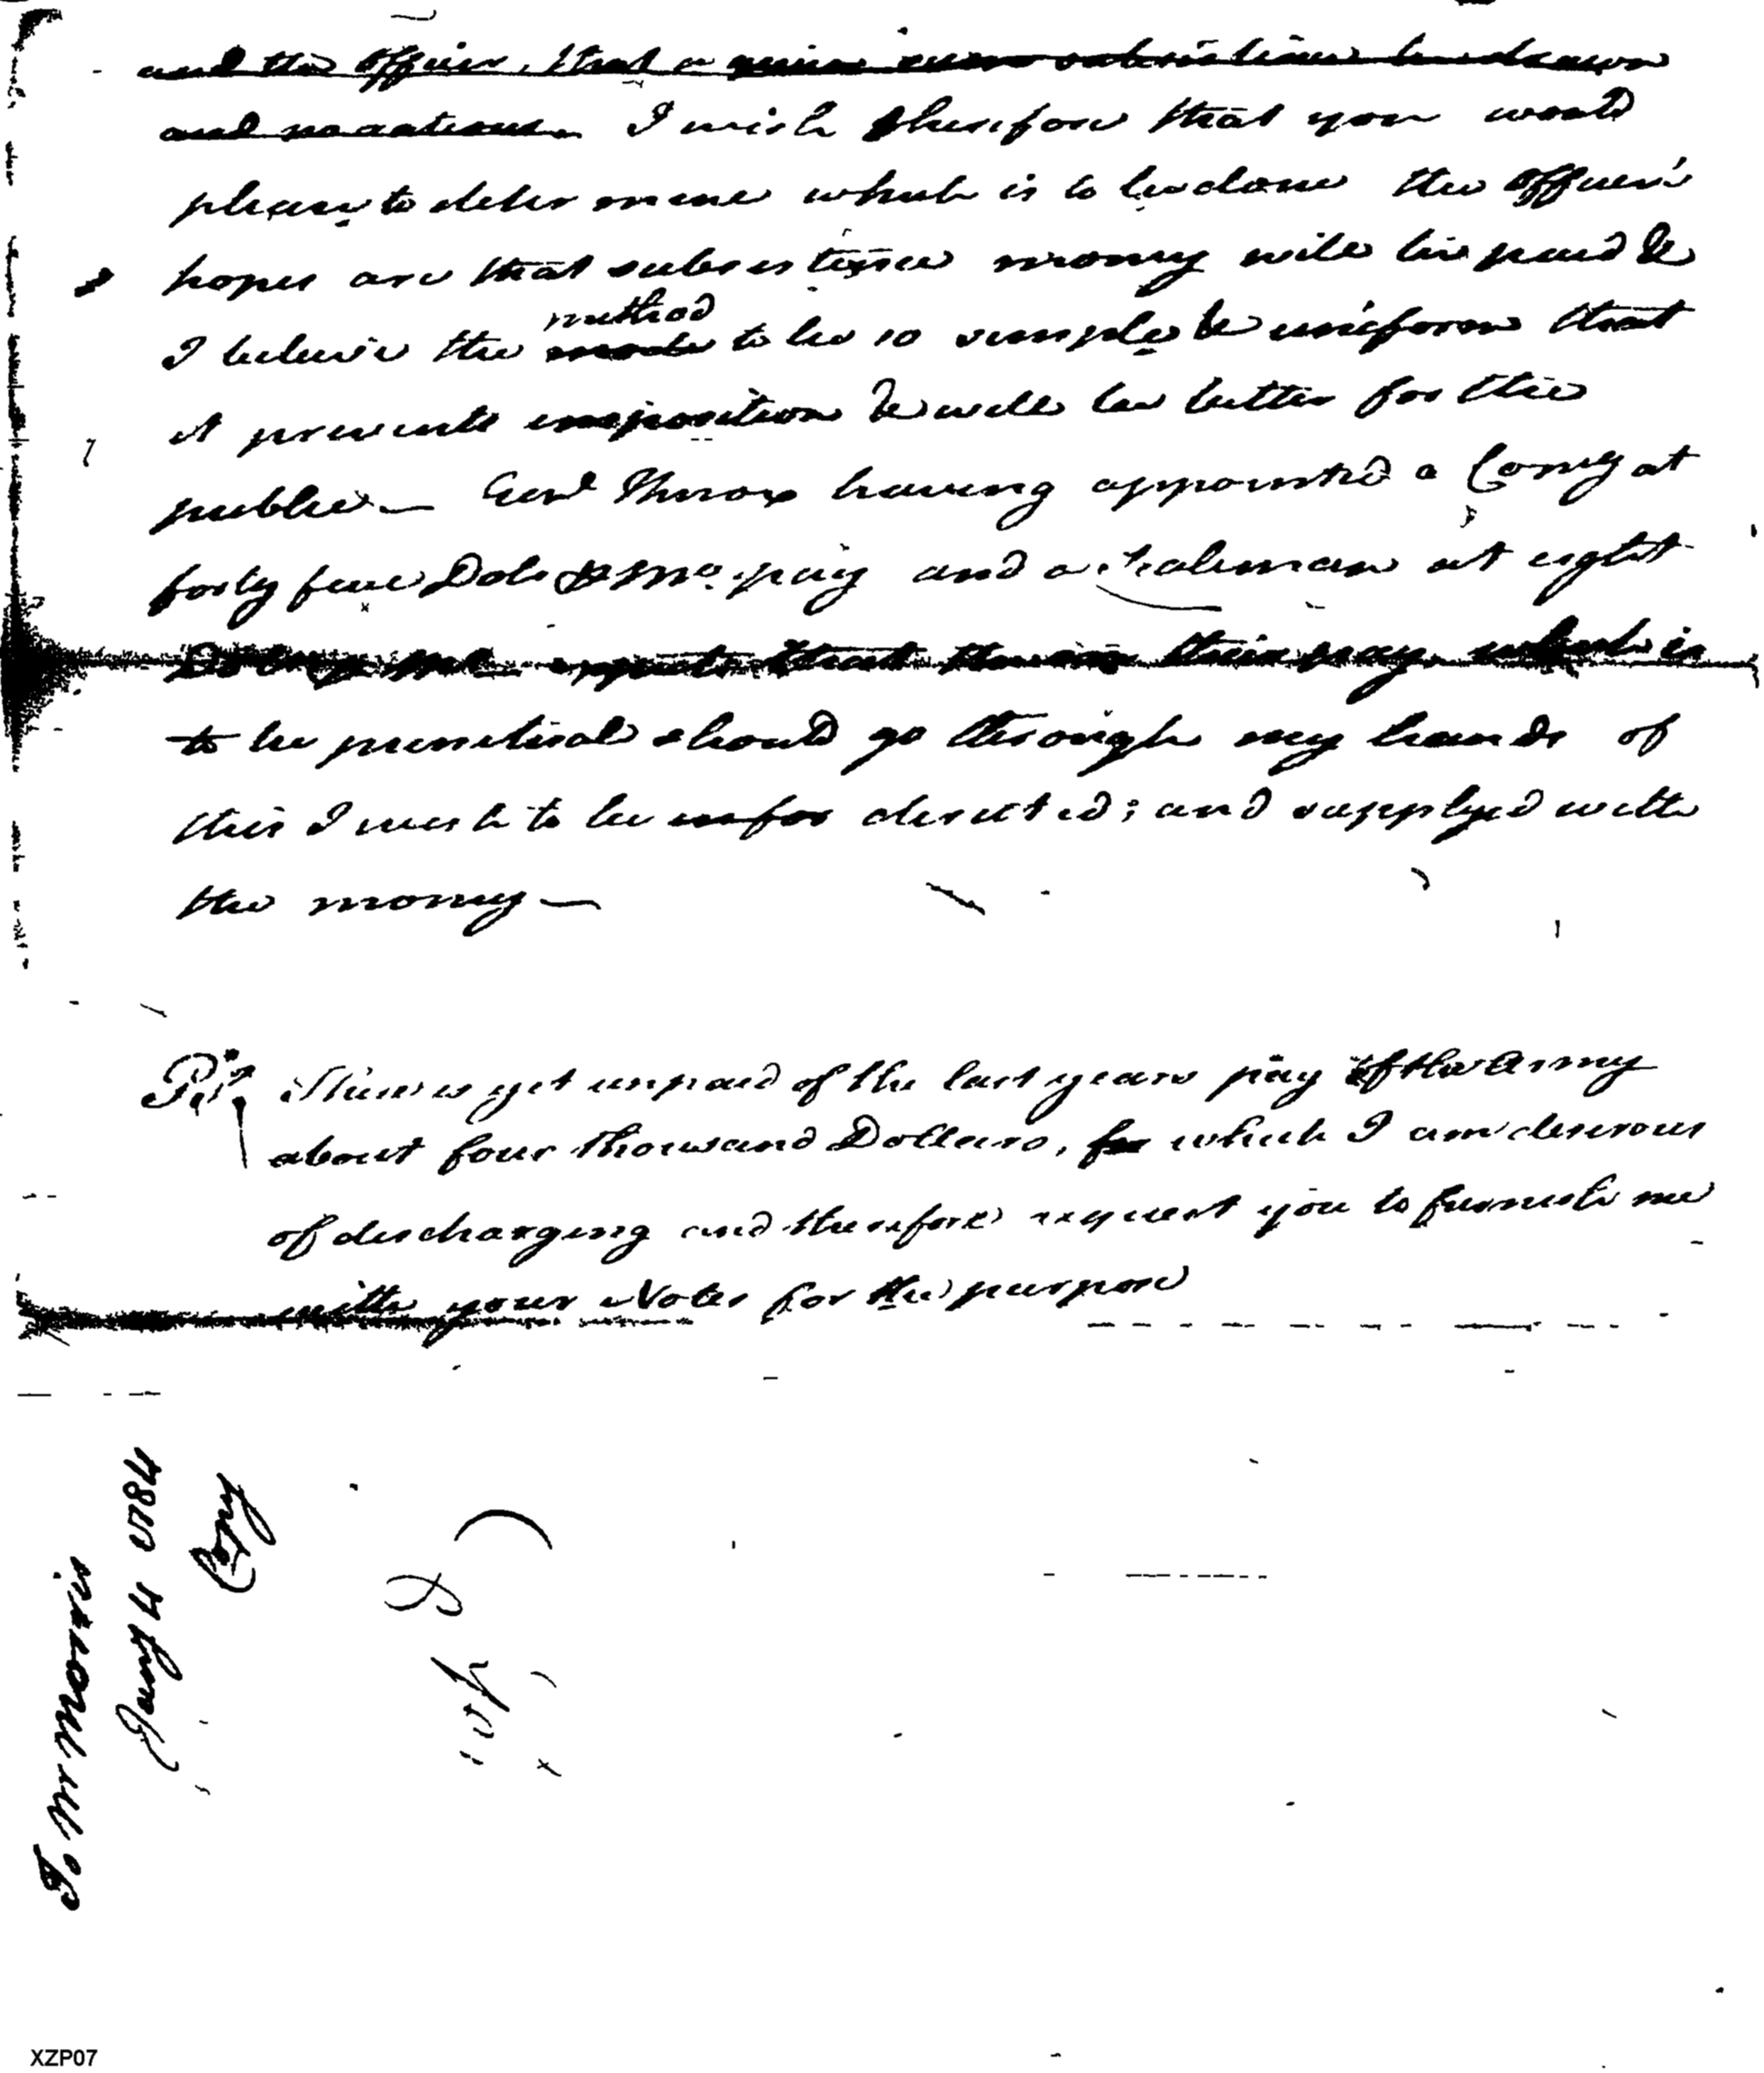 and the officers, that a
and no rations. I wish therefore that you would
please to determine which is to be done the officers
hopes are that subsistence money will be paid &
method
I believe the mode to be so simple & uniform that
it prevents imposition & will be better for the
public — Genl Knox having appointed a Comy at
forty five Dols P Mo. pay and a at eight
Dols expects that their pay which is
to be punctual should go through my hands of
this I wish to be infor directed; and supplyed with
the money —
P.S. There is yet unpaid of the last years pay of the Army
about four thousand Dollars, for which I am desirous
of discharging and therefore request you to furnish me
with your Notes for the purpose
To Mr Morris
Jany 4 1784
Copy
XZP07